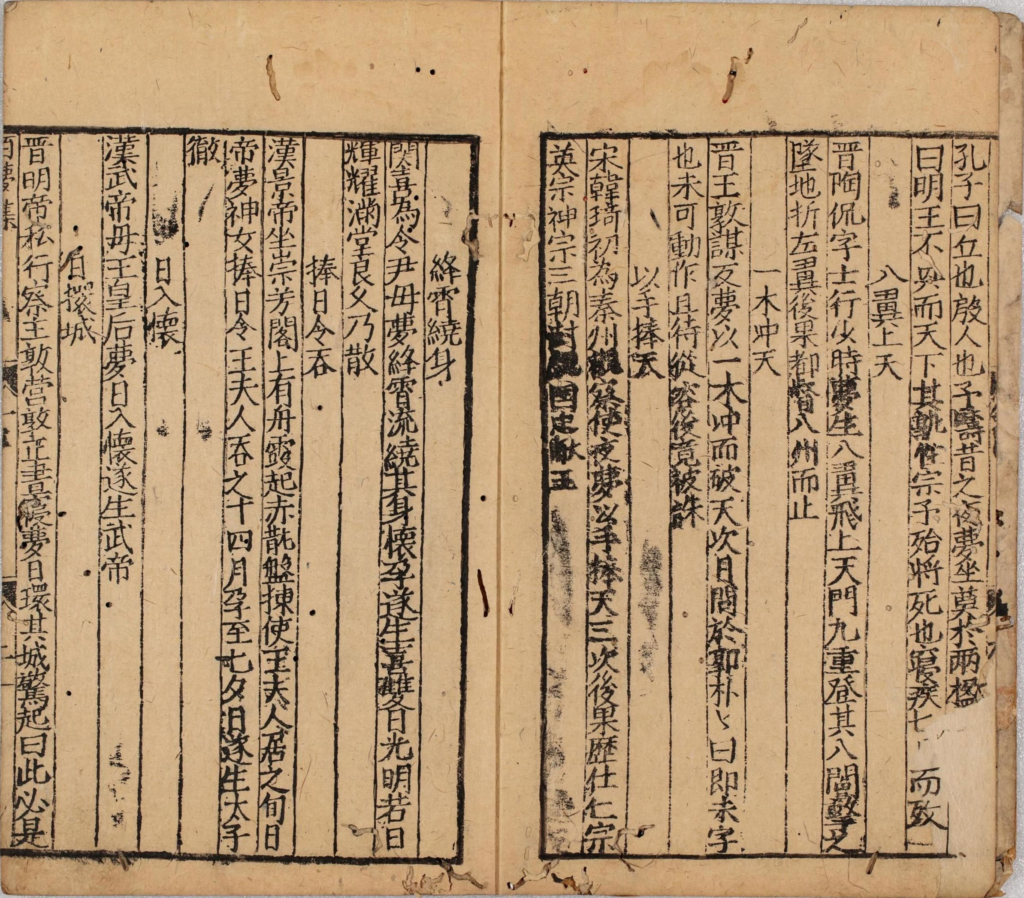 孔子曰丘也殷人也予疇昔之夜夢坐奠於兩楹
曰明王不興而天下其孰能宗予殆將死也寢疾七而歿
八翼上天
晋陶侃字士行少時夢生八翼飛上天門九重登其八閽擊之
墜地折左翼後果都督八州而止
一木冲天
晋王敦謀反夢以一木冲而破天次日問於郭朴〻曰即未字
也未可動作且待從容後竟被誅
以手捧天
宋韓琦初為秦州觀察使夜夢以手捧天三次後果歷仕仁宗
英宗神宗三朝封魏國忠獻王
絳霄繞身
関喜為令尹母夢絳霄流繞其身懷孕遂生喜雙目光明若日
輝耀滿堂良久乃散
捧日令吞
漢景帝坐崇芳閣上有丹霞起赤龍盤棟使王夫人居之旬日
帝夢神女捧日令王夫人吞之十四月孕至七夕日遂生太子
徹
日入懷
漢武帝母王皇后夢日入懷遂生武帝
日環城
晋明帝私行察王敦营敦正晝寢夢日環其城驚起曰此必是
夢集